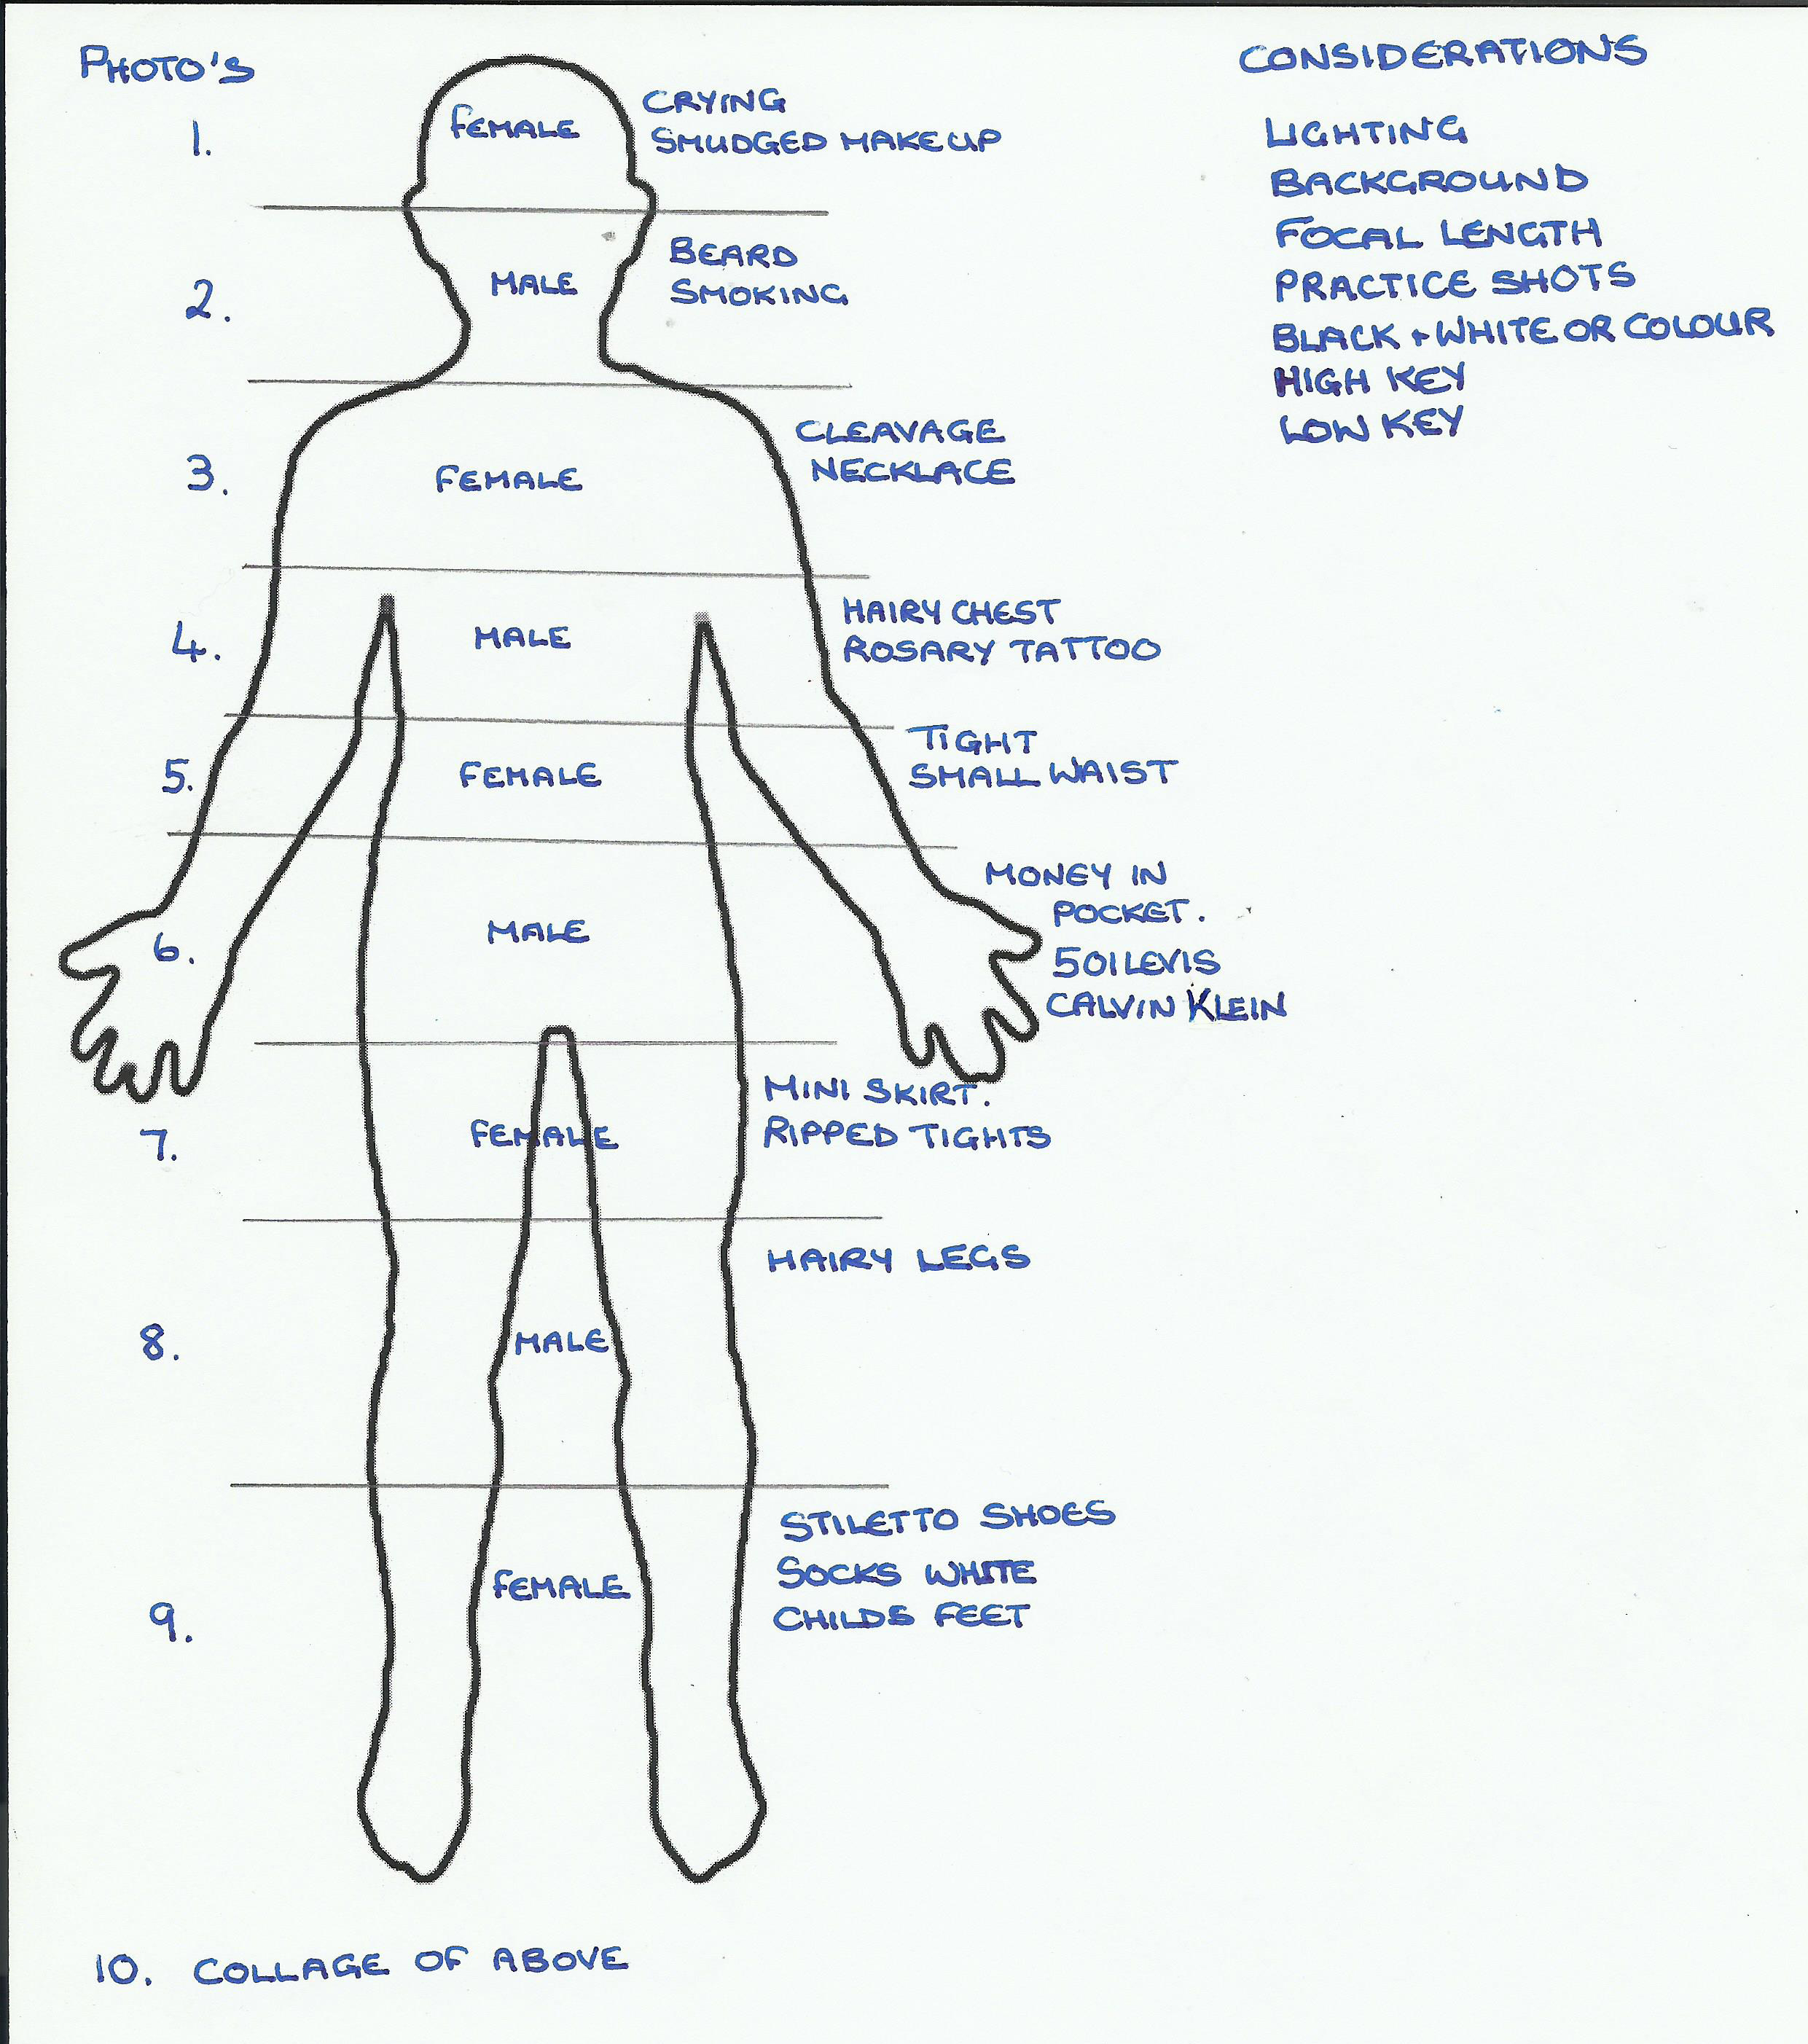 PHOTO'S
1.
FEMALE
CRYING
SMUDGED MAKEUP
2.
MALE
BEARD
SMOKING
3.
FEMALE
CLEAVAGE
NECKLACE
4.
MALE
HAIRY CHEST
ROSARY TATTOO
5.
FEMALE
TIGHT
SMALL WAIST
6.
MALE
MONEY IN
POCKET.
501 LEVIS
CALVIN KLEIN
7.
FEMALE
MINI SKIRT.
RIPPED TIGHTS
8.
MALE
HAIRY LEGS
9.
FEMALE
STILETTO SHOES
SOCKS WHITE
CHILDS FEET
10. COLLAGE OF ABOVE
CONSIDERATIONS
LIGHTING
BACKGROUND
FOCAL LENGTH
PRACTICE SHOTS
BLACK + WHITE OR COLOUR
HIGH KEY
LOW KEY